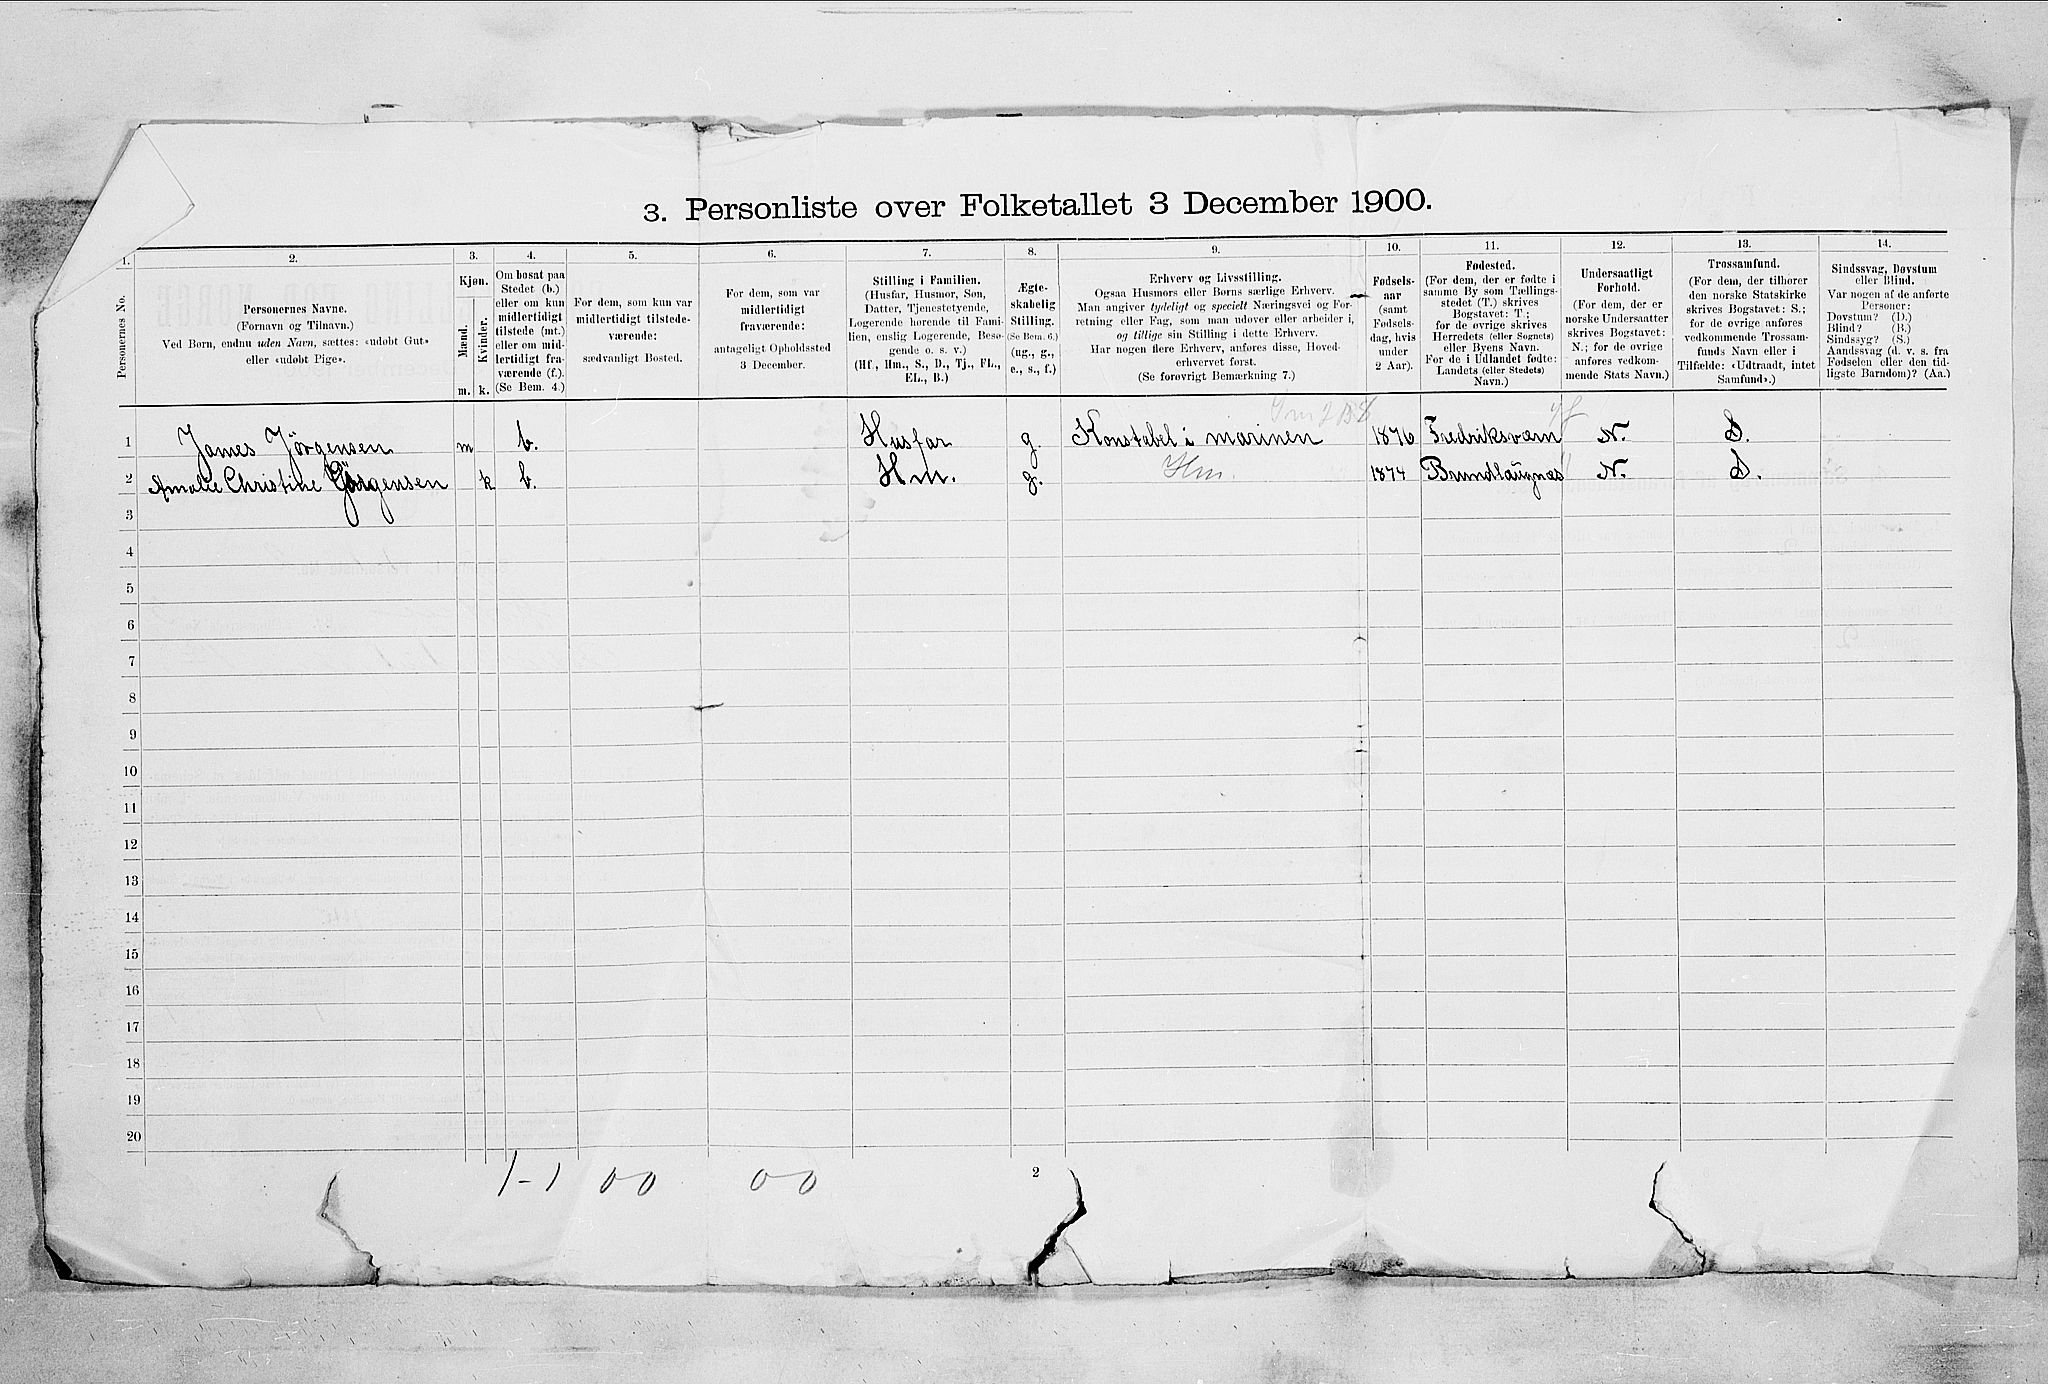 3. Personliste over Folketallet 3 December 1900.
1. 2. 3. 4. 5. 6. 7. 8. 9. 10. 11. 12. 13. 14.
Personernes No.
Personernes Navne.
(Fornavn og Tilnavn.)
Ved Børn, endnu uden Navn, sættes: «udobt Gut»
eller «udobt Pige».
Kjøn.
Mænd.
Kvinder.
m. k.
Om bosat paa
Stedet (b.)
eller om kun
midlertidigt
tilstede (mt.)
eller om mid-
lertidigt fra-
værende (f.).
(Se Bem. 4.)
For dem, som kun var
midlertidigt tilstede-
værende:
sædvanligt Bosted.
For dem, som var
midlertidigt
fraværende:
antageligt Opholdssted
3 December.
Stilling i Familien.
(Husfar, Husmor, Søn,
Datter, Tjenestetyende,
Logerende hørende til Fami-
lien, enslig Logerende, Besø-
gende o. s. v.)
(Hf., Hm., S., D., Tj., FL.,
EL., B.)
Ægte-
skabelig
Stilling.
(Se Bem. 6.)
(ug., g.,
e., s., f.)
Erhverv og Livsstilling.
Ogsaa Husmors eller Børns særlige Erhverv.
Man angiver tydeligt og specielt Næringsvei og For-
retning eller Fag, som man udøver eller arbeider i,
og tillige sin Stilling i dette Erhverv.
Har nogen flere Erhverv, anføres disse, Hoved-
erhvervet først.
(Se forøvrigt Bemærkning 7.)
Fødsels-
aar
(samt
Fødsels-
dag, hvis
under
2 Aar).
Fødested.
(For dem, der er fødte i
samme By som Tællings-
stedet (T.) skrives
Bogstavet: T.;
for de øvrige skrives
Herredets (eller Sognets)
eller Byens Navn.
For de i Udlandet fødte:
Landets (eller Stedets)
Navn.)
Undersaatligt
Forhold.
(For dem, der er
norske Undersaatter
skrives Bogstavet:
N.; for de øvrige
anføres vedkom-
mende Stats Navn.)
Trossamfund.
(For dem, der tilhører
den norske Statskirke
skrives Bogstavet: S.;
for de øvrige anføres
vedkommende Trossam-
funds Navn eller i
Tilfælde: «Udtraadt, intet
Samfund».)
Sindssvag, Døvstum
eller Blind.
Var nogen af de anførte
Personer:
Døvstum? (D.)
Blind? (B.)
Sindssyg? (S.)
Aandssvag (d. v. s. fra
Fødselen eller den tid-
ligste Barndom)? (Aa.)
1 James Jörgensen m b. Husfar g. Konstabel i marinen 1876 Fredriksværn N. S.
2 Amalie Christine Jörgensen k b. Hm. g. Hm. 1874 Brundlaugnæs N. S.
3
4
5
6
7
8
9
10
11
12
13
14
15
16
17
18
19
20
1-1 00 00
2